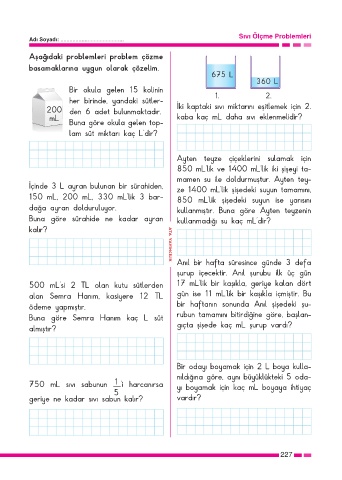 Adı Soyadı: ..............................
Sıvı Ölçme Problemleri
Aşağıdaki problemleri problem çözme
basamaklarına uygun olarak çözelim.
200
mL
Bir okula gelen 15 kolinin
her birinde, yandaki sütler-
den 6 adet bulunmaktadır.
Buna göre okula gelen top-
lam süt miktarı kaç L'dir?
İçinde 3 L ayran bulunan bir sürahiden,
150 mL, 200 mL, 330 mL'lik 3 bar-
dağa ayran dolduruluyor.
Buna göre sürahide ne kadar ayran
kalır?
500 mL'si 2 TL olan kutu sütlerden
alan Semra Hanım, kasiyere 12 TL
ödeme yapmıştır.
Buna göre Semra Hanım kaç L süt
almıştır?
750 mL sıvı sabunun 1/5'i harcanırsa
geriye ne kadar sıvı sabun kalır?
675 L
360 L
1.
2.
İki kaptaki sıvı miktarını eşitlemek için 2.
kaba kaç mL daha sıvı eklenmelidir?
Ayten teyze çiçeklerini sulamak için
850 mL'lik ve 1400 mL'lik iki şişeyi ta-
mamen su ile doldurmuştur. Ayten tey-
ze 1400 mL'lik şişedeki suyun tamamını,
850 mL'lik şişedeki suyun ise yarısını
kullanmıştır. Buna göre Ayten teyzenin
kullanmadığı su kaç mL'dir?
Anıl bir hafta süresince günde 3 defa
şurup içecektir. Anıl şurubu ilk üç gün
17 mL'lik bir kaşıkla, geriye kalan dört
gün ise 11 mL'lik bir kaşıkla içmiştir. Bu
bir haftanın sonunda Anıl şişedeki şu-
rubun tamamını bitirdiğine göre, başlan-
gıçta şişede kaç mL şurup vardı?
Bir odayı boyamak için 2 L boya kulla-
nıldığına göre, aynı büyüklükteki 5 oda-
yı boyamak için kaç mL boyaya ihtiyaç
vardır?
227